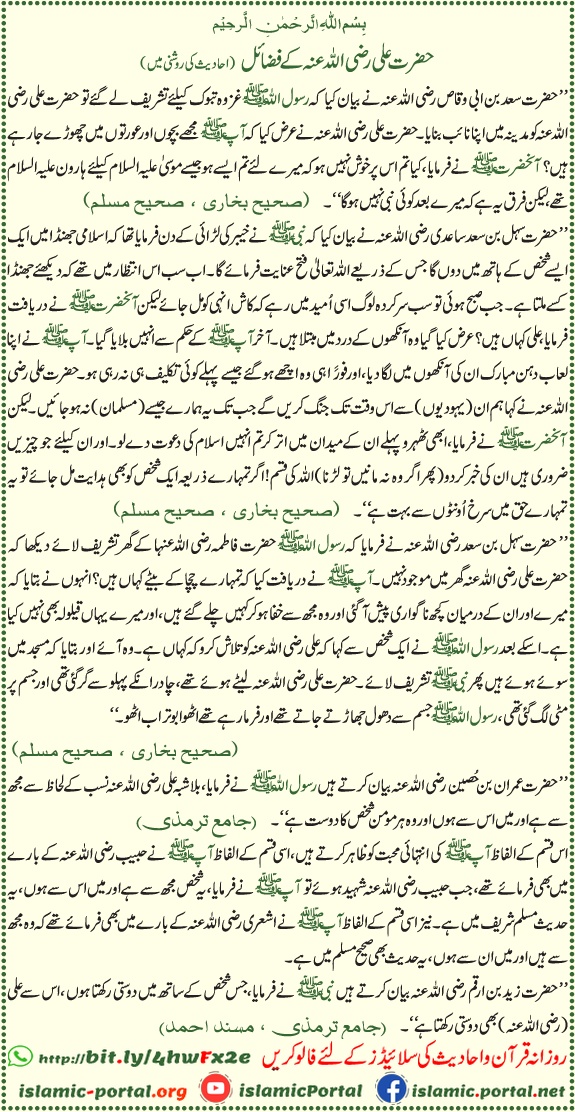 بِسْمِ اللهِ الرَّحْمٰنِ الرَّحِيْمِ
حضرت علی رضی اللہ عنہ کے فضائل (احادیث کی روشنی میں)
’’حضرت سعد بن ابی وقاص رضی اللہ عنہ نے بیان کیا کہ رسول اللہ ﷺ غزوہ تبوک کیلئے تشریف لے گئے تو حضرت علی رضی
اللہ عنہ کو مدینہ میں اپنا نائب بنایا۔ حضرت علی رضی اللہ عنہ نے عرض کیا کہ آپ ﷺ مجھے بچوں اور عورتوں میں چھوڑے جا رہے
ہیں؟ آنحضرت ﷺ نے فرمایا، کیا تم اس پر خوش نہیں ہو کہ میرے لئے تم ایسے ہو جیسے موسیٰ علیہ السلام کیلئے ہارون علیہ السلام
تھے، لیکن فرق یہ ہے کہ میرے بعد کوئی نبی نہیں ہوگا‘‘۔ (صحیح بخاری ، صحیح مسلم)
’’حضرت سہل بن سعد ساعدی رضی اللہ عنہ نے بیان کیا کہ نبی ﷺ نے خیبر کی لڑائی کے دن فرمایا تھا کہ اسلامی جھنڈا میں ایک
ایسے شخص کے ہاتھ میں دوں گا جس کے ذریعے اللہ تعالیٰ فتح عنایت فرمائے گا۔ اب سب اس انتظار میں تھے کہ دیکھئے جھنڈا
کسے ملتا ہے۔ جب صبح ہوئی تو سب سرکردہ لوگ اسی اُمید میں رہے کہ کاش انہی کو مل جائے لیکن آنحضرت ﷺ نے دریافت
فرمایا، علی کہاں ہیں؟ عرض کیا گیا وہ آنکھوں کے درد میں مبتلا ہیں۔ آخر آپ ﷺ کے حکم سے انہیں بلایا گیا۔ آپ ﷺ نے اپنا
لعاب دہن مبارک ان کی آنکھوں میں لگا دیا، اور فوراً ہی وہ اچھے ہو گئے جیسے پہلے کوئی تکلیف ہی نہ رہی ہو۔ حضرت علی رضی
اللہ عنہ نے کہا ہم ان (یہودیوں) سے اس وقت تک جنگ کریں گے جب تک یہ ہمارے جیسے (مسلمان) نہ ہو جائیں۔ لیکن
آنحضرت ﷺ نے فرمایا، ابھی ٹھہرو پہلے ان کے میدان میں اتر کر تم انہیں اسلام کی دعوت دے لو۔ اور ان کیلئے جو چیزیں
ضروری ہیں ان کی خبر کردو (پھر اگر وہ نہ مانیں تو لڑنا) اللہ کی قسم! اگر تمہارے ذریعہ ایک شخص کو بھی ہدایت مل جائے تو یہ
تمہارے حق میں سرخ اُونٹوں سے بہت ہے‘‘۔ (صحیح بخاری ، صحیح مسلم)
’’حضرت سہل بن سعد رضی اللہ عنہ نے فرمایا کہ رسول اللہ ﷺ حضرت فاطمہ رضی اللہ عنہا کے گھر تشریف لائے دیکھا کہ
حضرت علی رضی اللہ عنہ گھر میں موجود نہیں۔ آپ ﷺ نے دریافت کیا کہ تمہارے چچا کے بیٹے کہاں ہیں؟ انہوں نے بتایا کہ
میرے اور ان کے درمیان کچھ ناگواری پیش آگئی اور وہ مجھ سے خفا ہو کر کہیں چلے گئے ہیں، اور میرے یہاں قیلولہ بھی نہیں کیا
ہے۔ اسکے بعد رسول اللہ ﷺ نے ایک شخص سے کہا کہ علی رضی اللہ عنہ کو تلاش کرو کہ کہاں ہے۔ وہ آئے اور بتایا کہ مسجد میں
سوئے ہوئے ہیں پھر نبی ﷺ تشریف لائے۔ حضرت علی رضی اللہ عنہ لیٹے ہوئے تھے، چادر انکے پہلو سے گر گئی تھی اور جسم پر
مٹی لگ گئی تھی، رسول اللہ ﷺ جسم سے دھول جھاڑتے جاتے تھے اور فرما رہے تھے اٹھو ابو تراب اٹھو۔‘‘
(صحیح بخاری ، صحیح مسلم)
’’حضرت عمران بن حُصین رضی اللہ عنہ بیان کرتے ہیں رسول اللہ ﷺ نے فرمایا، بلاشبہ علی رضی اللہ عنہ نسب کے لحاظ سے مجھ
سے ہے اور میں اس سے ہوں اور وہ ہر مومن شخص کا دوست ہے‘‘۔ (جامع ترمذی)
اس قسم کے الفاظ آپ ﷺ کی انتہائی محبت کو ظاہر کرتے ہیں، اسی قسم کے الفاظ آپ ﷺ نے حبیب رضی اللہ عنہ کے بارے
میں بھی فرمائے تھے، جب حبیب رضی اللہ عنہ شہید ہوئے تو آپ ﷺ نے فرمایا، یہ شخص مجھ سے ہے اور میں اس سے ہوں، یہ
حدیث مسلم شریف میں ہے۔ نیز اسی قسم کے الفاظ آپ ﷺ نے اشعری رضی اللہ عنہ کے بارے میں بھی فرمائے تھے کہ وہ مجھ
سے ہیں اور میں ان سے ہوں، یہ حدیث بھی صحیح مسلم میں ہے۔
’’حضرت زید بن ارقم رضی اللہ عنہ بیان کرتے ہیں نبی ﷺ نے فرمایا، جس شخص کے ساتھ میں دوستی رکھتا ہوں، اس سے علی
(رضی اللہ عنہ) بھی دوستی رکھتا ہے‘‘۔ (جامع ترمذی ، مسند احمد)
روزانہ قرآن و احادیث کی سلائیڈز کے لئے فالو کریں http://bit.ly/4hwFx2e
islamic-portal.org islamicPortal islamic.portal.net